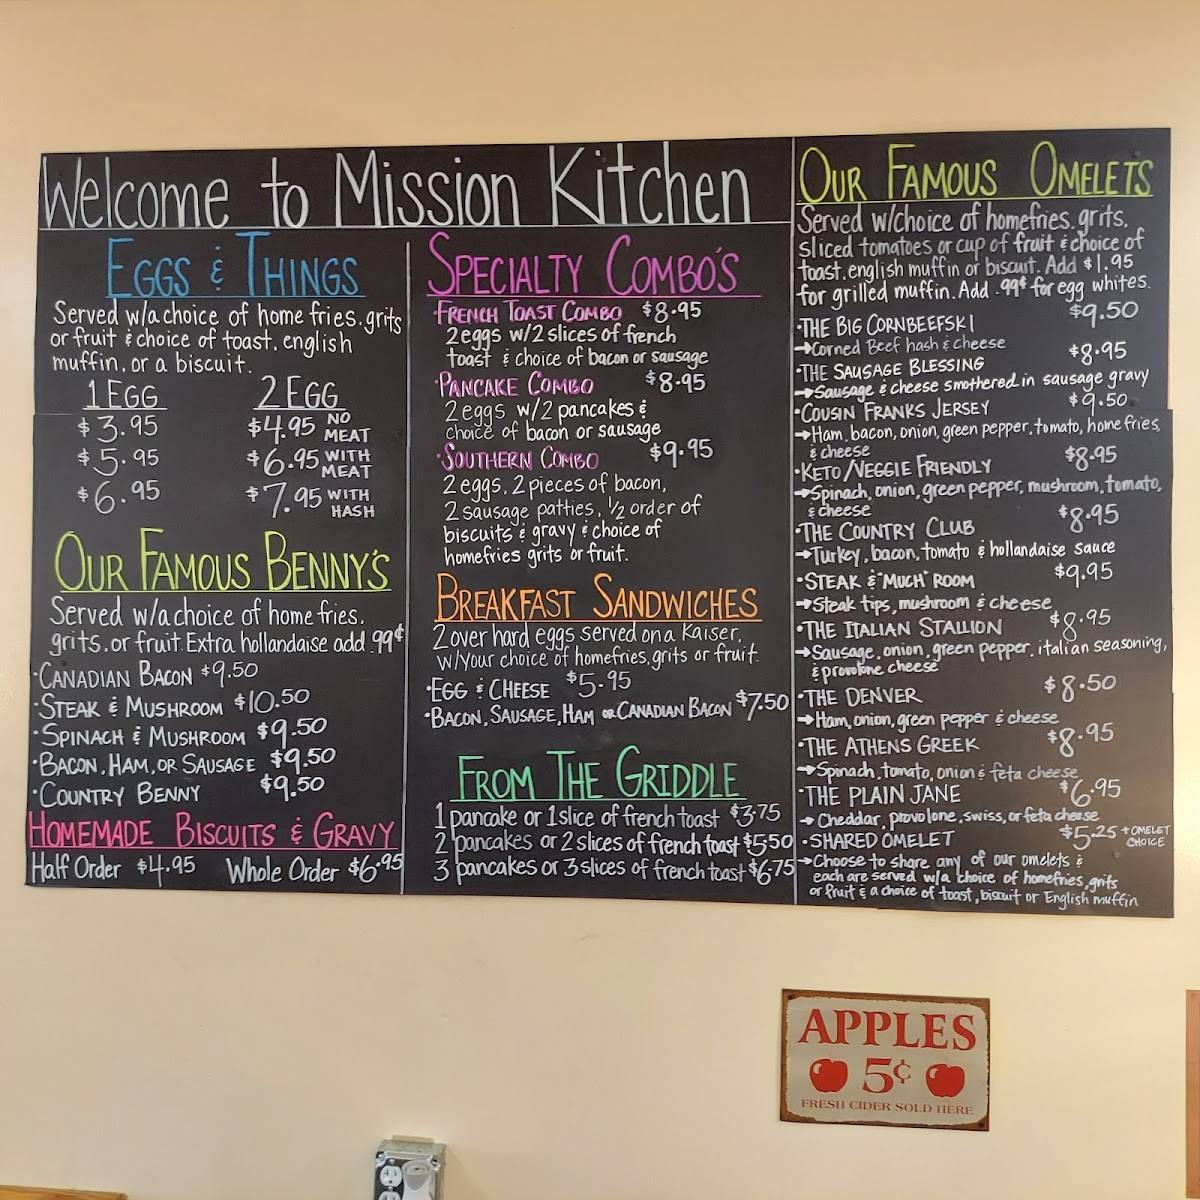 Welcome to Mission Kitchen
EGGS & THINGS
Served w/a choice of home fries, grits
or fruit & choice of toast, english
muffin, or a biscuit.
1 EGG 2 EGG
$3.95 $4.95 NO MEAT
$5.95 $6.95 WITH MEAT
$6.95 $7.95 WITH HASH
OUR FAMOUS BENNY'S
Served w/a choice of home fries,
grits, or fruit. Extra hollandaise add .99¢
·CANADIAN BACON $9.50
·STEAK & MUSHROOM $10.50
·SPINACH & MUSHROOM $9.50
·BACON, HAM, OR SAUSAGE $9.50
·COUNTRY BENNY $9.50
HOMEMADE BISCUITS & GRAVY
Half Order $4.95 Whole Order $6.95
SPECIALTY COMBO'S
·FRENCH TOAST COMBO $8.95
2 eggs w/2 slices of french
toast & choice of bacon or sausage
·PANCAKE COMBO $8.95
2 eggs w/2 pancakes &
choice of bacon or sausage
·SOUTHERN COMBO $9.95
2 eggs, 2 pieces of bacon,
2 sausage patties, 1/2 order of
biscuits & gravy & choice of
homefries grits or fruit.
BREAKFAST SANDWICHES
2 over hard eggs served on a Kaiser,
w/Your choice of homefries, grits or fruit.
·EGG & CHEESE $5.95
·BACON, SAUSAGE, HAM OR CANADIAN BACON $7.50
FROM THE GRIDDLE
1 pancake or 1 slice of french toast $3.75
2 pancakes or 2 slices of french toast $5.50
3 pancakes or 3 slices of french toast $6.75
OUR FAMOUS OMELETS
Served w/choice of homefries, grits,
sliced tomatoes or cup of fruit & choice of
toast, english muffin or biscuit. Add $1.95
for grilled muffin. Add .99¢ for egg whites.
·THE BIG CORNBEEFSKI $9.50
→Corned Beef hash & cheese
·THE SAUSAGE BLESSING $8.95
→Sausage & cheese smothered in sausage gravy
·COUSIN FRANKS JERSEY $9.50
→Ham, bacon, onion, green pepper, tomato, home fries
& cheese
·KETO/VEGGIE FRIENDLY $8.95
→Spinach, onion, green pepper, mushroom, tomato,
& cheese
·THE COUNTRY CLUB $8.95
→Turkey, bacon, tomato & hollandaise sauce
·STEAK & "MUCH" ROOM $9.95
→Steak tips, mushroom & cheese
·THE ITALIAN STALLION $8.95
→Sausage, onion, green pepper, italian seasoning,
& provolone cheese
·THE DENVER $8.50
→Ham, onion, green pepper & cheese
·THE ATHENS GREEK $8.95
→Spinach, tomato, onion & feta cheese
·THE PLAIN JANE $6.95
→Cheddar, provolone, swiss, or feta cheese
·SHARED OMELET $5.25 + OMELET CHOICE
→Choose to share any of our omelets &
each are served w/a choice of homefries, grits
or fruit & a choice of toast, biscuit or English muffin
APPLES
5¢
FRESH CIDER SOLD HERE